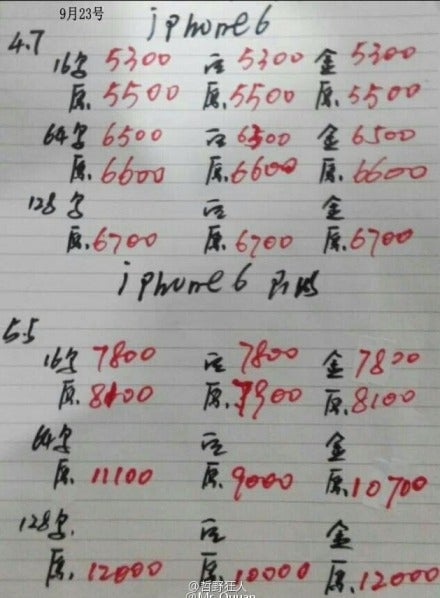 9月23号
iphone6
4.7
16 5300 5300 金 5300
原.5500 原.5500 原.5500
64 6500 6500 金 6500
原.6600 原.6600 原.6600
128 金
原.6700 原.6700 原.6700
iphone6 Plus
5.5
16 7800 7800 金 7800
原.8100 原.7900 原.8100
64 金
原.11100 原.9000 原.10700
128 金
原.12000 原.10000 原.12000
@哲野狂人